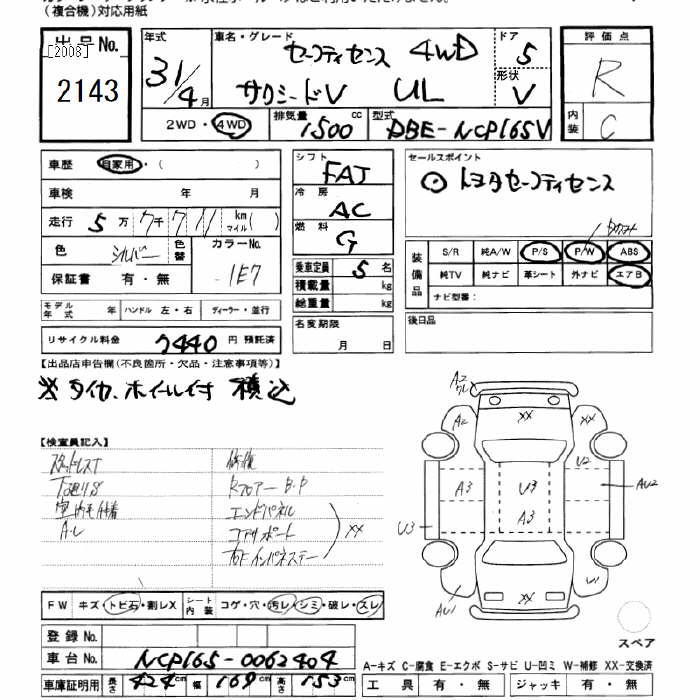 (複合機)対応用紙
出品No.
[2008]
2143
年式
31/4月
車名・グレード
セーフティセンス 4WD
サクシードV UL
ドア
5
形状
V
評価点
R
内装
C
2WD・4WD
排気量
1500cc
型式
DBE-NCP165V
車歴 自家用・( )
車検 年 月
走行 5万7千711 km マイル( )
色 シルバー 色替 カラーNo. 1E7
保証書 有・無
モデル年式 年 ハンドル 左・右 ディーラー・並行
リサイクル料金 7440 円 預託済
シフト FAT
冷房 AC
燃料 G
乗車定員 5 名
積載量 kg
総重量 kg
名変期限
月 日
セールスポイント
⊙ トヨタセーフティセンス
装備品
S/R 純A/W P/S P/W ABS
純TV 純ナビ 革シート 外ナビ エアB
ナビ型番:
後日品
【出品店申告欄(不良箇所・欠品・注意事項等)】
※ タイヤ、ホイール付 積込
【検査員記入】
スタッドレスT
下廻りS
室内毛付着
A・L
修復
RフロアーB・P
エンドパネル
コアサポート
XX
FW キズ・トビ石・割レX シート内装 コゲ・穴・汚レ・シミ・破レ・スレ
登録No.
車台No. NCP165-0062404
車庫証明用 長さ 424cm 幅 169cm 高さ 153cm
XX
A2
XX
U2
A3
U3
A3
AU2
U3
XX
AU1
U1
スペア
A-キズ C-腐食 E-エクボ S-サビ U-凹ミ W-補修 XX-交換済
工具 有・無 ジャッキ 有・無